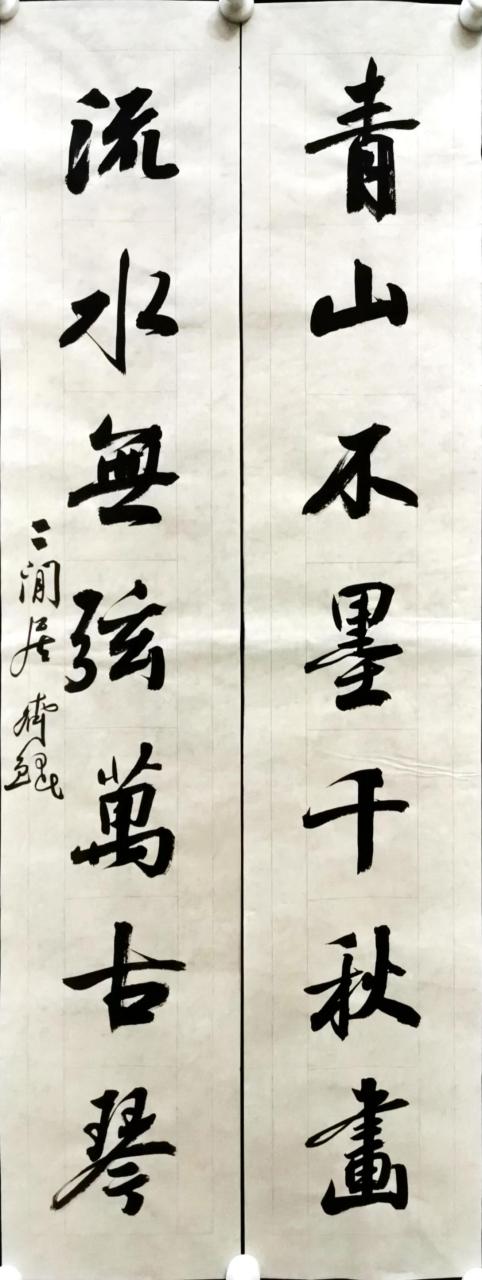 青山不墨千秋畫
流水無弦萬古琴
二閒居 齊鯤